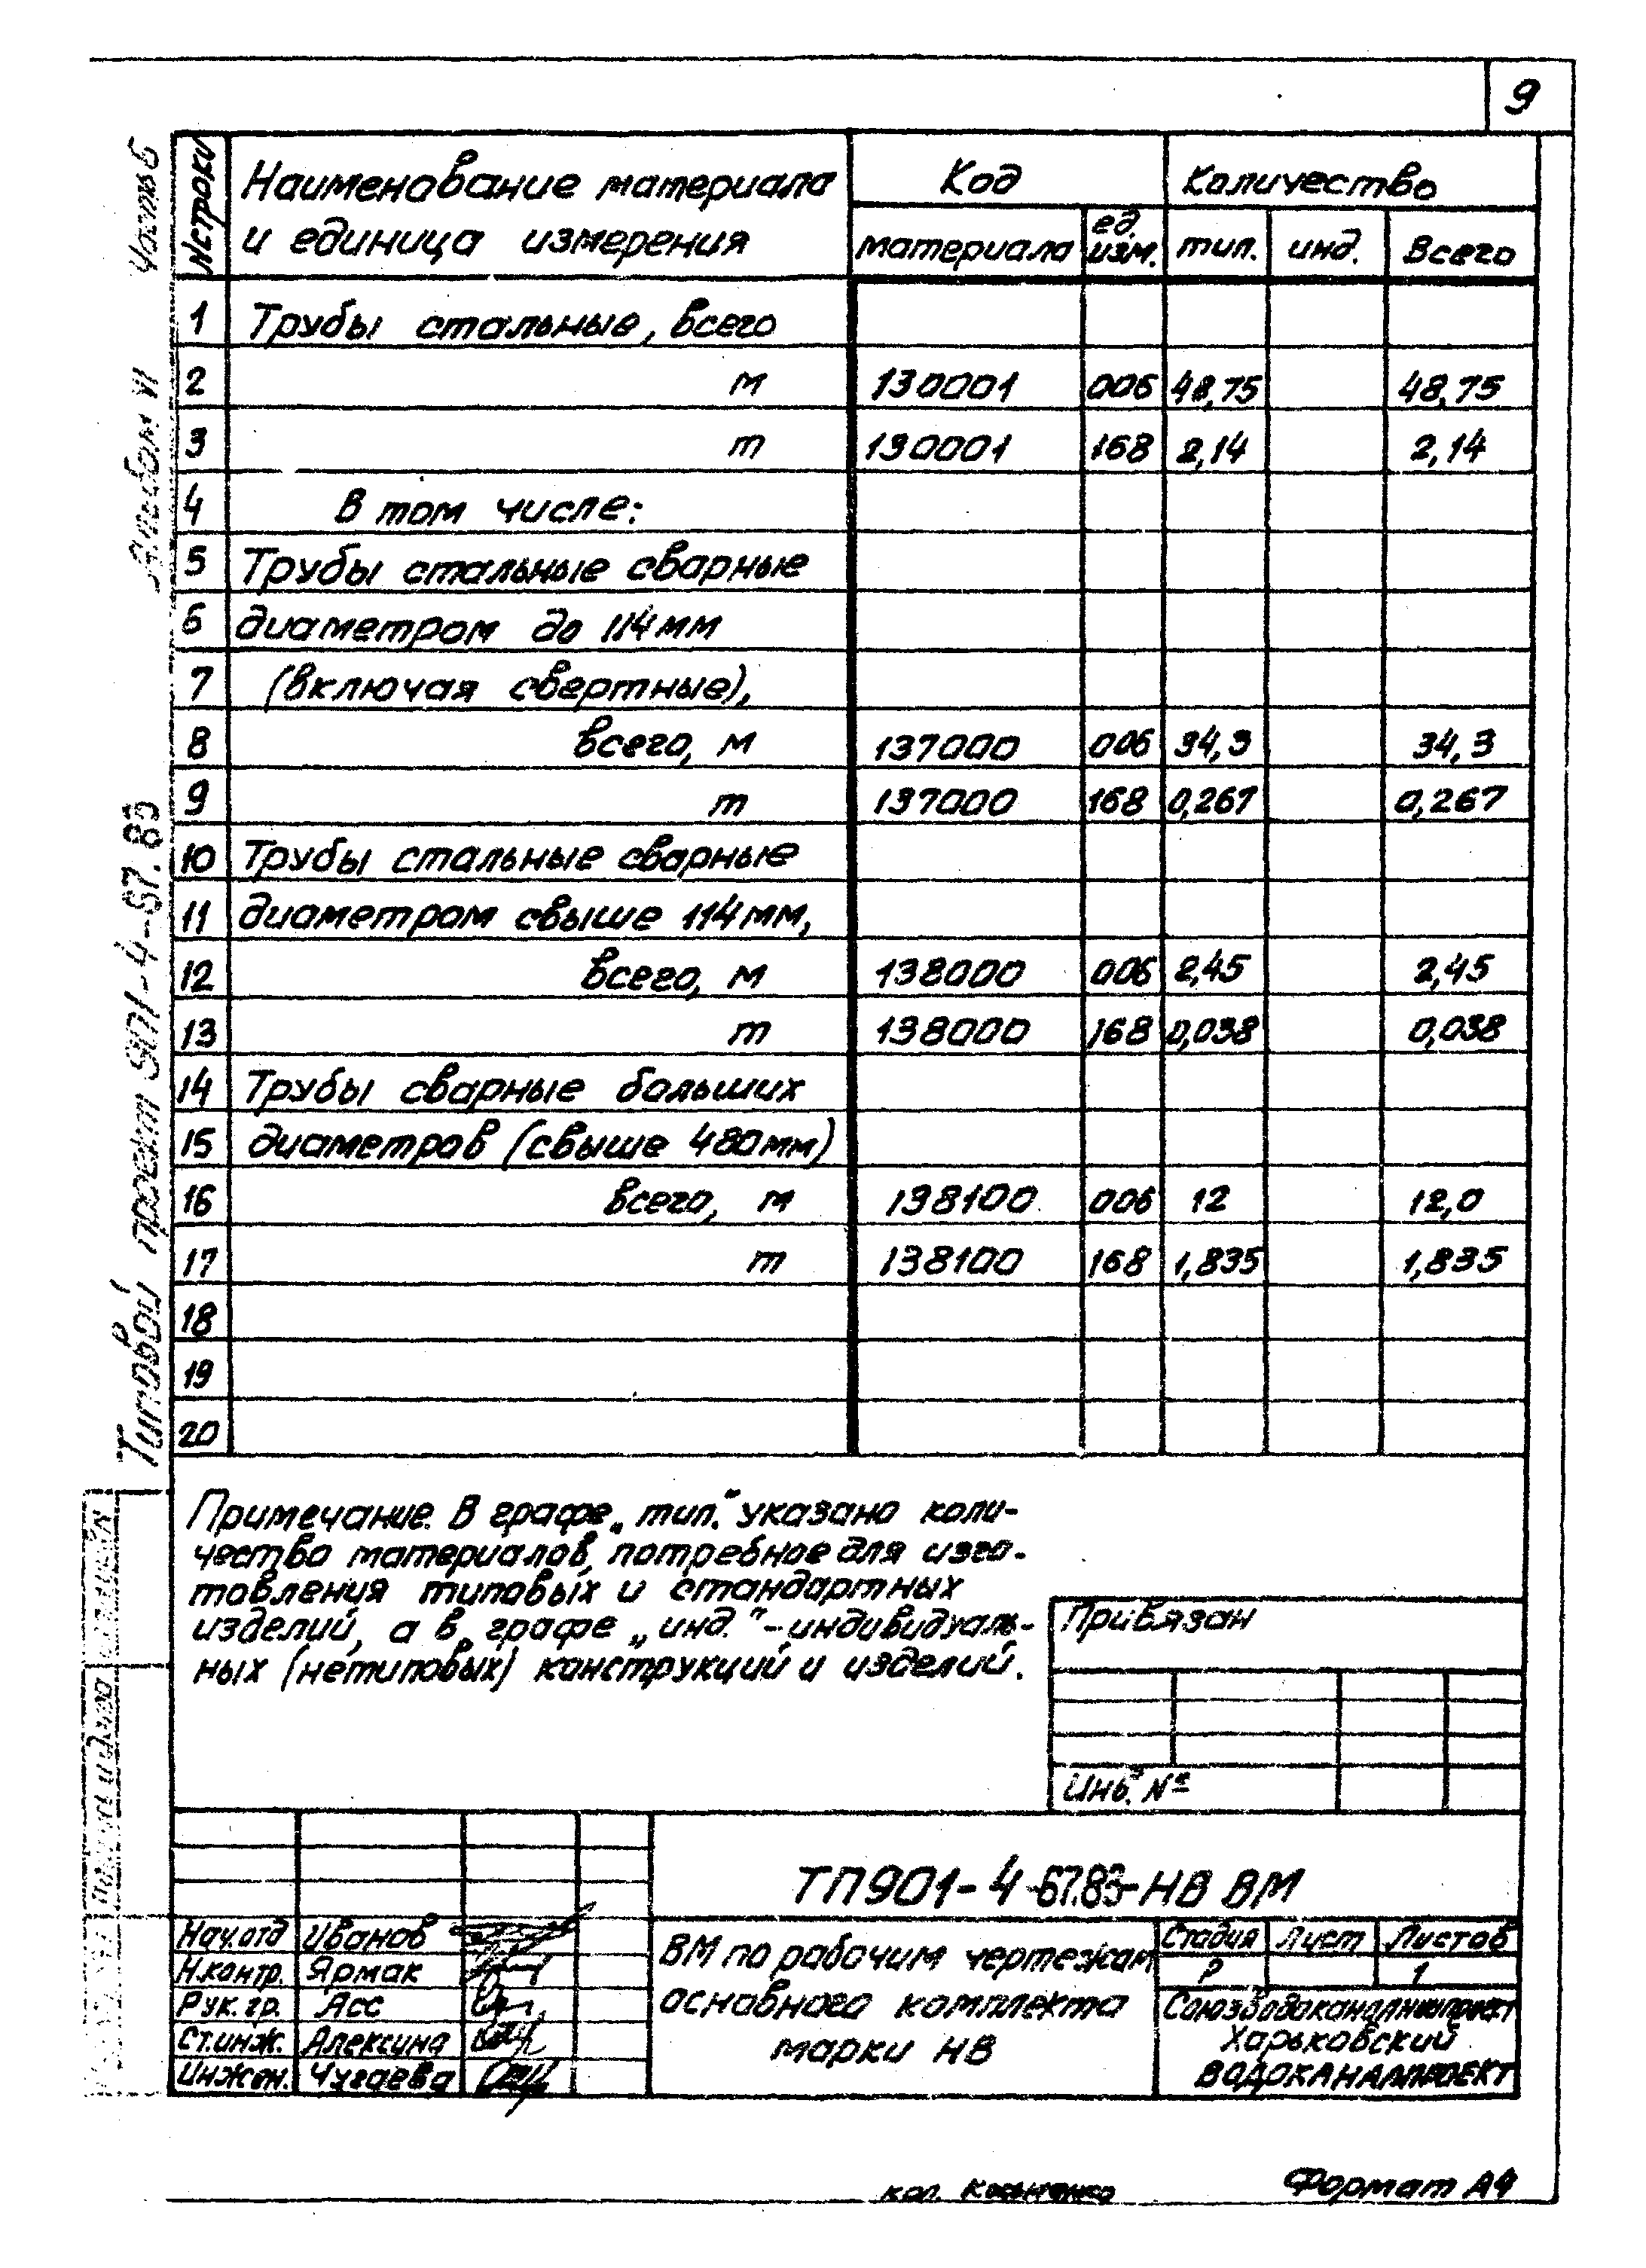 9
№ строки
Наименование материала
и единица измерения
Код
материала
ед.
изм.
Количество
тип.
инд.
Всего
1 Трубы стальные, всего
2 м 130001 006 48,75 48,75
3 т 130001 168 2,14 2,14
4 В том числе:
5 Трубы стальные сварные
6 диаметром до 114мм
7 (включая свертные),
8 всего, м 137000 006 34,3 34,3
9 т 137000 168 0,267 0,267
10 Трубы стальные сварные
11 диаметром свыше 114мм,
12 всего, м 138000 006 2,45 2,45
13 т 138000 168 0,038 0,038
14 Трубы сварные больших
15 диаметров (свыше 480мм)
16 всего, м 138100 006 12 12,0
17 т 138100 168 1,835 1,835
18
19
20
Типовой проект 901-4-67.83 Альбом VI Часть 6
Примечание. В графе „тип." указано коли-
чество материалов, потребное для изго-
товления типовых и стандартных
изделий, а в графе „инд."-индивидуаль-
ных (нетиповых) конструкций и изделий.
Привязан
Инв. №
ТП901-4-67.83-НВ ВМ
Нач.отд Иванов
Н.контр. Ярмак
Рук.гр. Асс
Ст.инж. Алексина
Инжен. Чугаева
ВМ по рабочим чертежам
основного комплекта
марки НВ
Стадия Лист Листов
Р 1
Союзводоканалниипроект
Харьковский
ВОДОКАНАЛПРОЕКТ
Подпись и дата
кол.
Формат А4